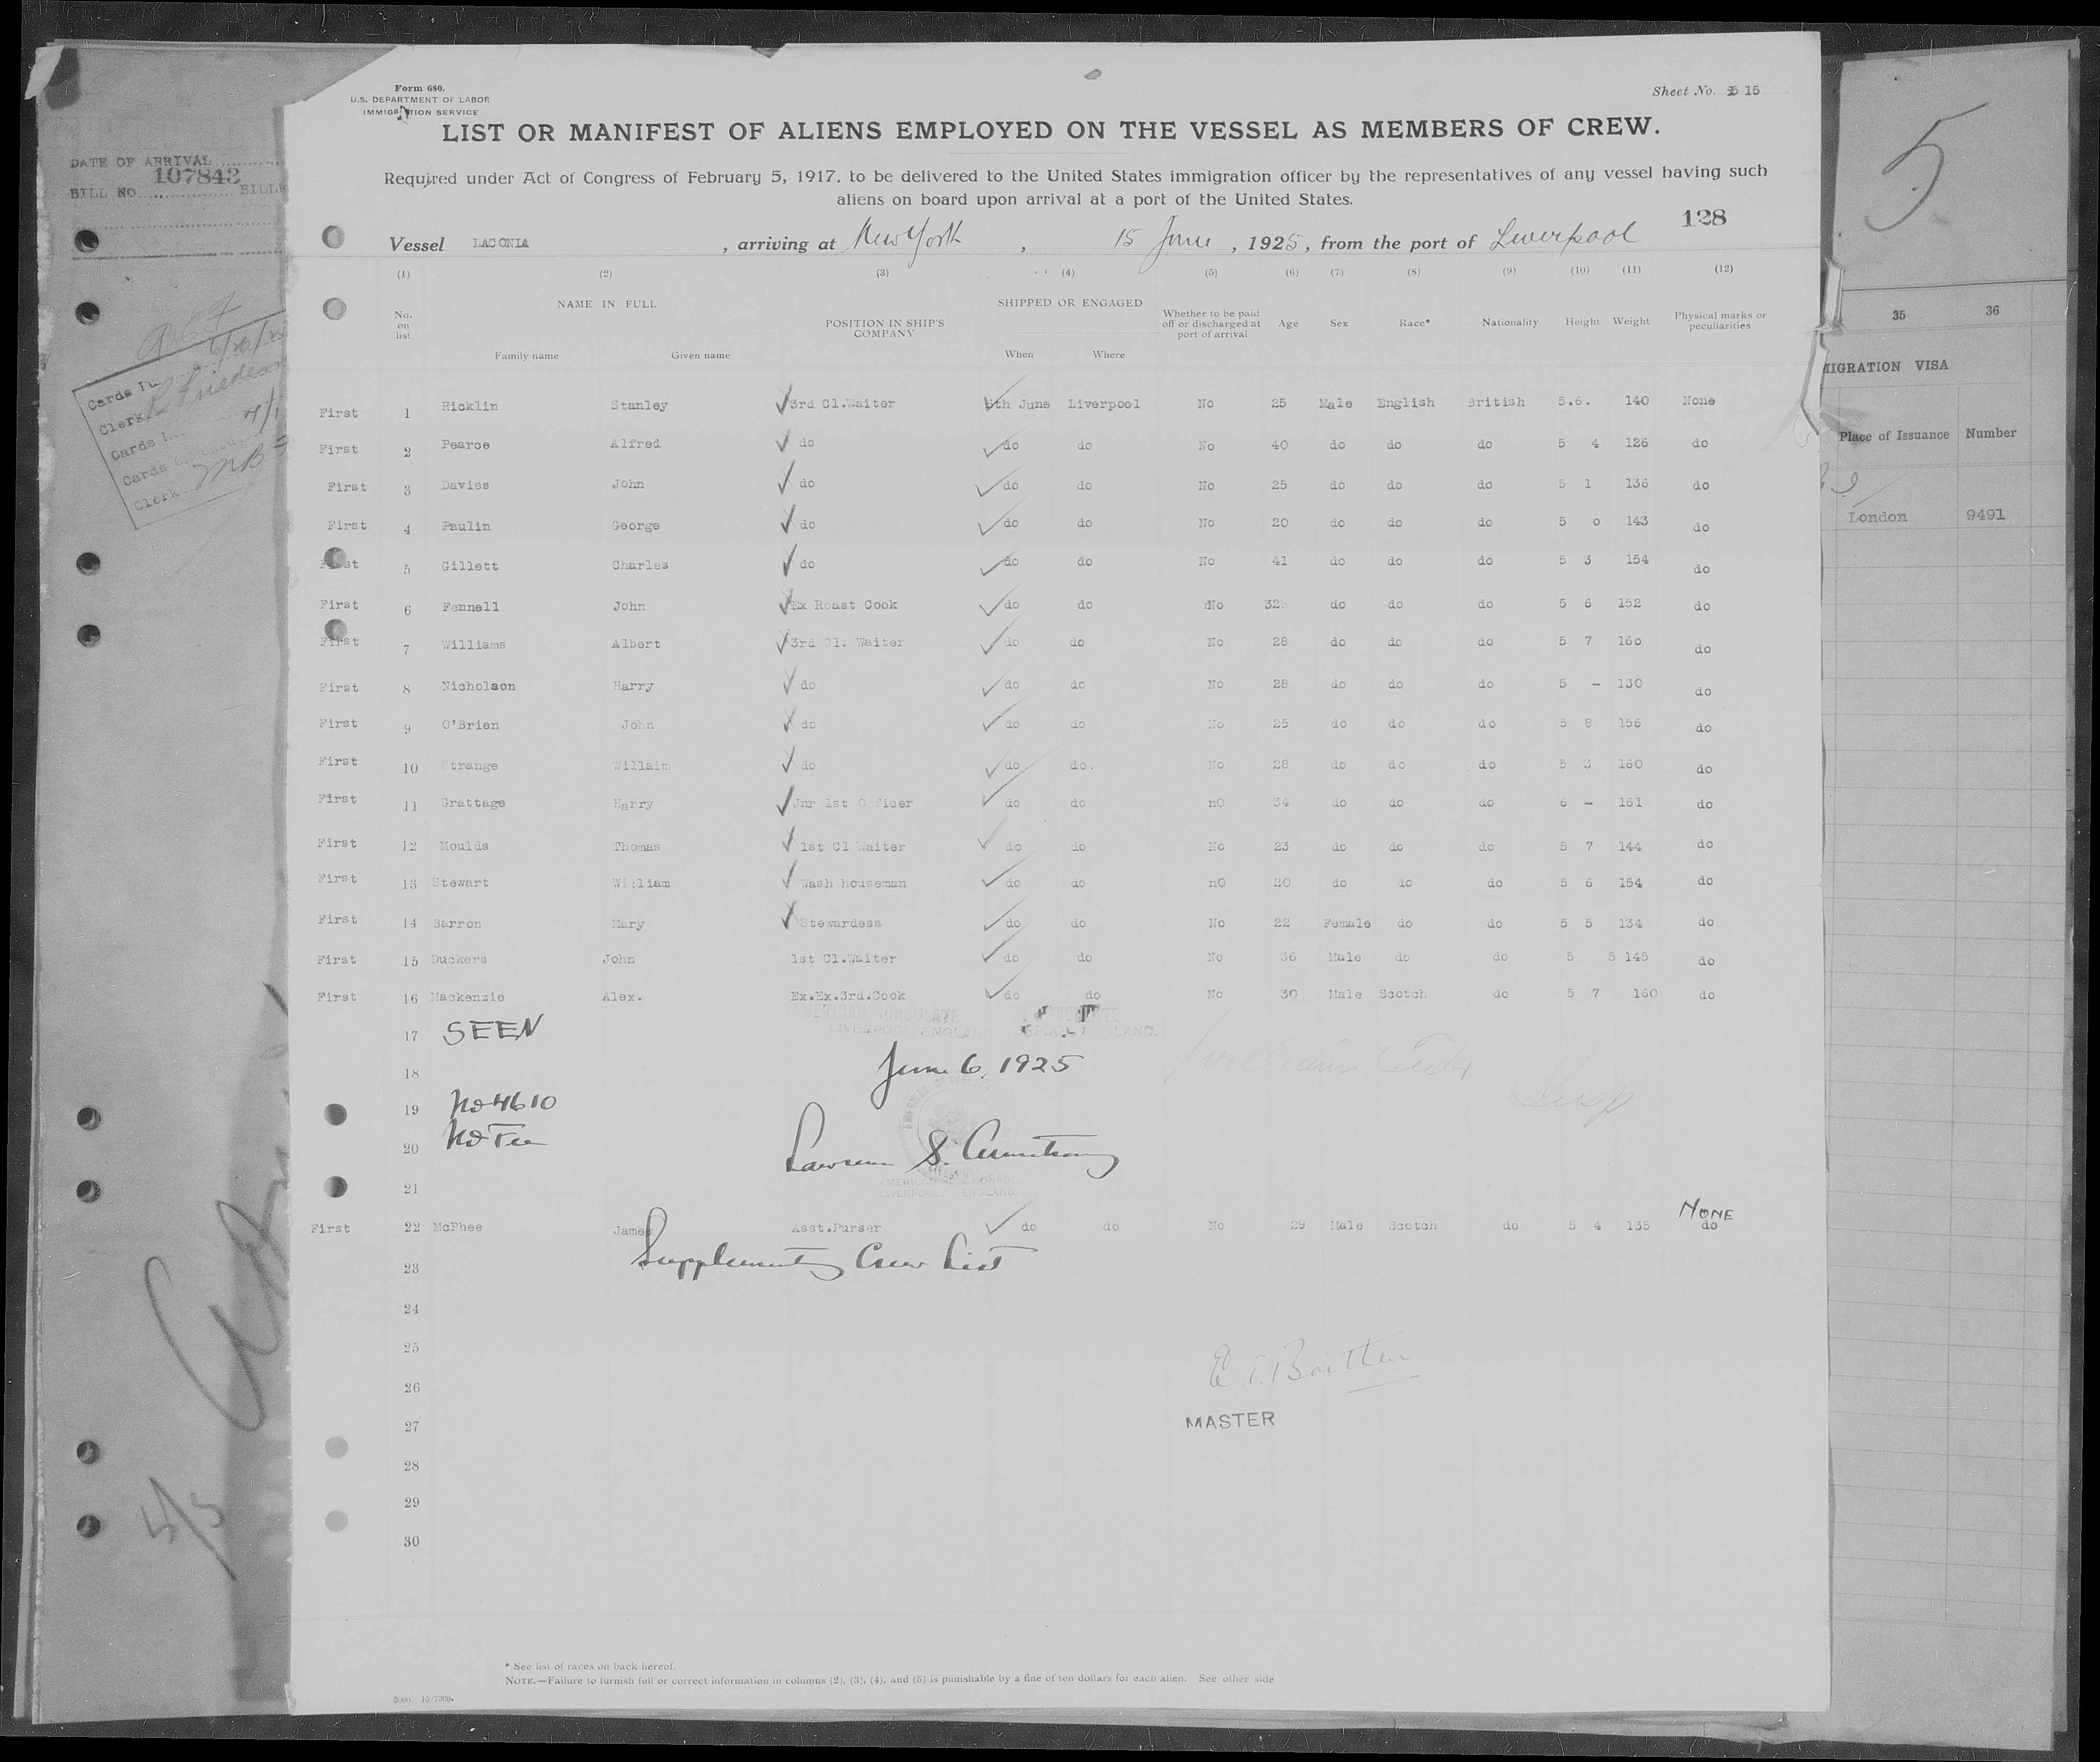 Form 680.
U.S. DEPARTMENT OF LABOR
IMMIGRATION SERVICE
Sheet No. 15
LIST OR MANIFEST OF ALIENS EMPLOYED ON THE VESSEL AS MEMBERS OF CREW.
Required under Act of Congress of February 5, 1917, to be delivered to the United States immigration officer by the representatives of any vessel having such
aliens on board upon arrival at a port of the United States.
128
Vessel LACONIA, arriving at New York, 15 June, 1925, from the port of Liverpool
(1) (2) (3) (4) (5) (6) (7) (8) (9) (10) (11) (12)
No. on list NAME IN FULL Family name Given name POSITION IN SHIP'S COMPANY SHIPPED OR ENGAGED When Where Whether to be paid off or discharged at port of arrival Age Sex Race* Nationality Height Weight Physical marks or peculiarities
First 1 Hicklin Stanley 3rd Cl.Waiter 6th June Liverpool No 25 Male English British 5.6. 140 None
First 2 Pearce Alfred do do do No 40 do do do 5 4 126 do
First 3 Davies John do do do No 25 do do do 5 1 136 do
First 4 Paulin George do do do No 20 do do do 5 0 143 do
First 5 Gillett Charles do do do No 41 do do do 5 3 154 do
First 6 Fennell John Ex Roast Cook do do No 32 do do do 5 6 152 do
First 7 Williams Albert 3rd Cl. Waiter do do No 28 do do do 5 7 160 do
First 8 Nicholson Harry do do do No 28 do do do 5 - 130 do
First 9 O'Brien John do do do No 25 do do do 5 8 156 do
First 10 Strange Willaim do do do. No 28 do do do 5 3 160 do
First 11 Grattage Harry Jnr 1st O ficer do do nO 34 do do do 6 - 161 do
First 12 Moulds Thomas 1st Cl Waiter do do No 23 do do do 5 7 144 do
First 13 Stewart Wi;liam Wash houseman do do nO 20 do do do 5 6 154 do
First 14 Barron Mary Stewardess do do No 22 Female do do 5 5 134 do
First 15 Duckers John 1st Cl.Waiter do do No 36 Male do do 5 5 145 do
First 16 Mackenzie Alex. Ex.Ex.3rd.Cook do do No 30 Male Scotch do 5 7 160 do
17 SEEN
AMERICAN CONSULATE
LIVERPOOL ENGLAND
18 June 6, 1925
19 No 4610
20 No Fee
Lawrence S. Armstrong
AMERICAN VICE CONSUL
LIVERPOOL ENGLAND.
21
NONE
First 22 McPhee James Asst.Purser do do No 29 Male Scotch do 5 4 135 do
23 Supplementy Crew List
24
25
E T. Britten
26
27 MASTER
28
29
30
* See list of races on back hereof.
NOTE.—Failure to furnish full or correct information in columns (2), (3), (4), and (5) is punishable by a fine of ten dollars for each alien. See other side
DATE OF ARRIVAL
107843
BILL NO.
Clerk
Clerk
5
35 36
MIGRATION VISA
Place of Issuance Number
London 9491